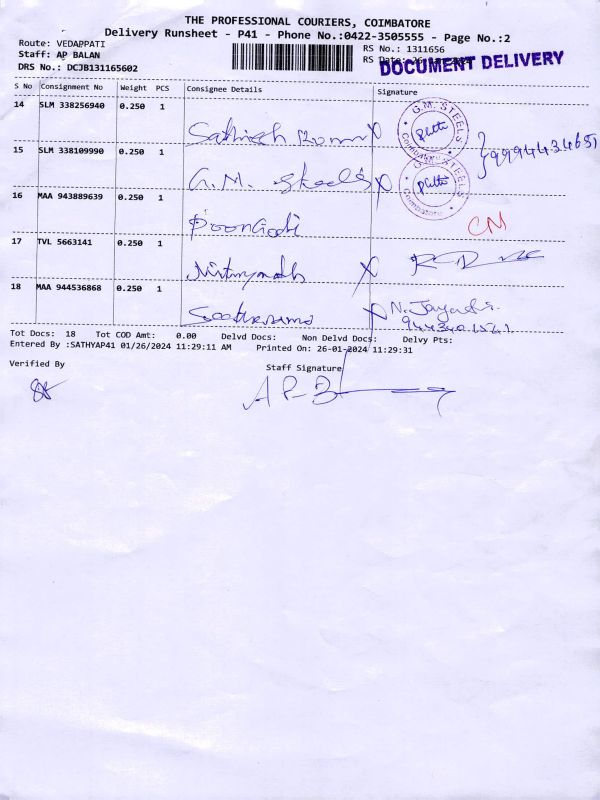 THE PROFESSIONAL COURIERS, COIMBATORE
Delivery Runsheet - P41 - Phone No.:0422-3505555 - Page No.:2
Route: VEDAPPATI
RS No.: 1311656
Staff: AP BALAN
RS Date: 26
DOCUMENT DELIVERY
DRS No.: DCJB131165602
S No Consignment No Weight PCS Consignee Details Signature
14 SLM 338256940 0.250 1
Sathish Kumar X
G.M. STEELS Coimbatore
} 9994434651
15 SLM 338109990 0.250 1
G.M. Steels X
G.M. STEELS Coimbatore
16 MAA 943889639 0.250 1
Poongodi
CM
17 TVL 5663141 0.250 1
X
18 MAA 944536868 0.250 1
X N. Jayanthi
Tot Docs: 18 Tot COD Amt: 0.00 Delvd Docs: Non Delvd Docs: Delvy Pts:
Entered By :SATHYAP41 01/26/2024 11:29:11 AM Printed On: 26-01-2024 11:29:31
Verified By
Staff Signature
A P B